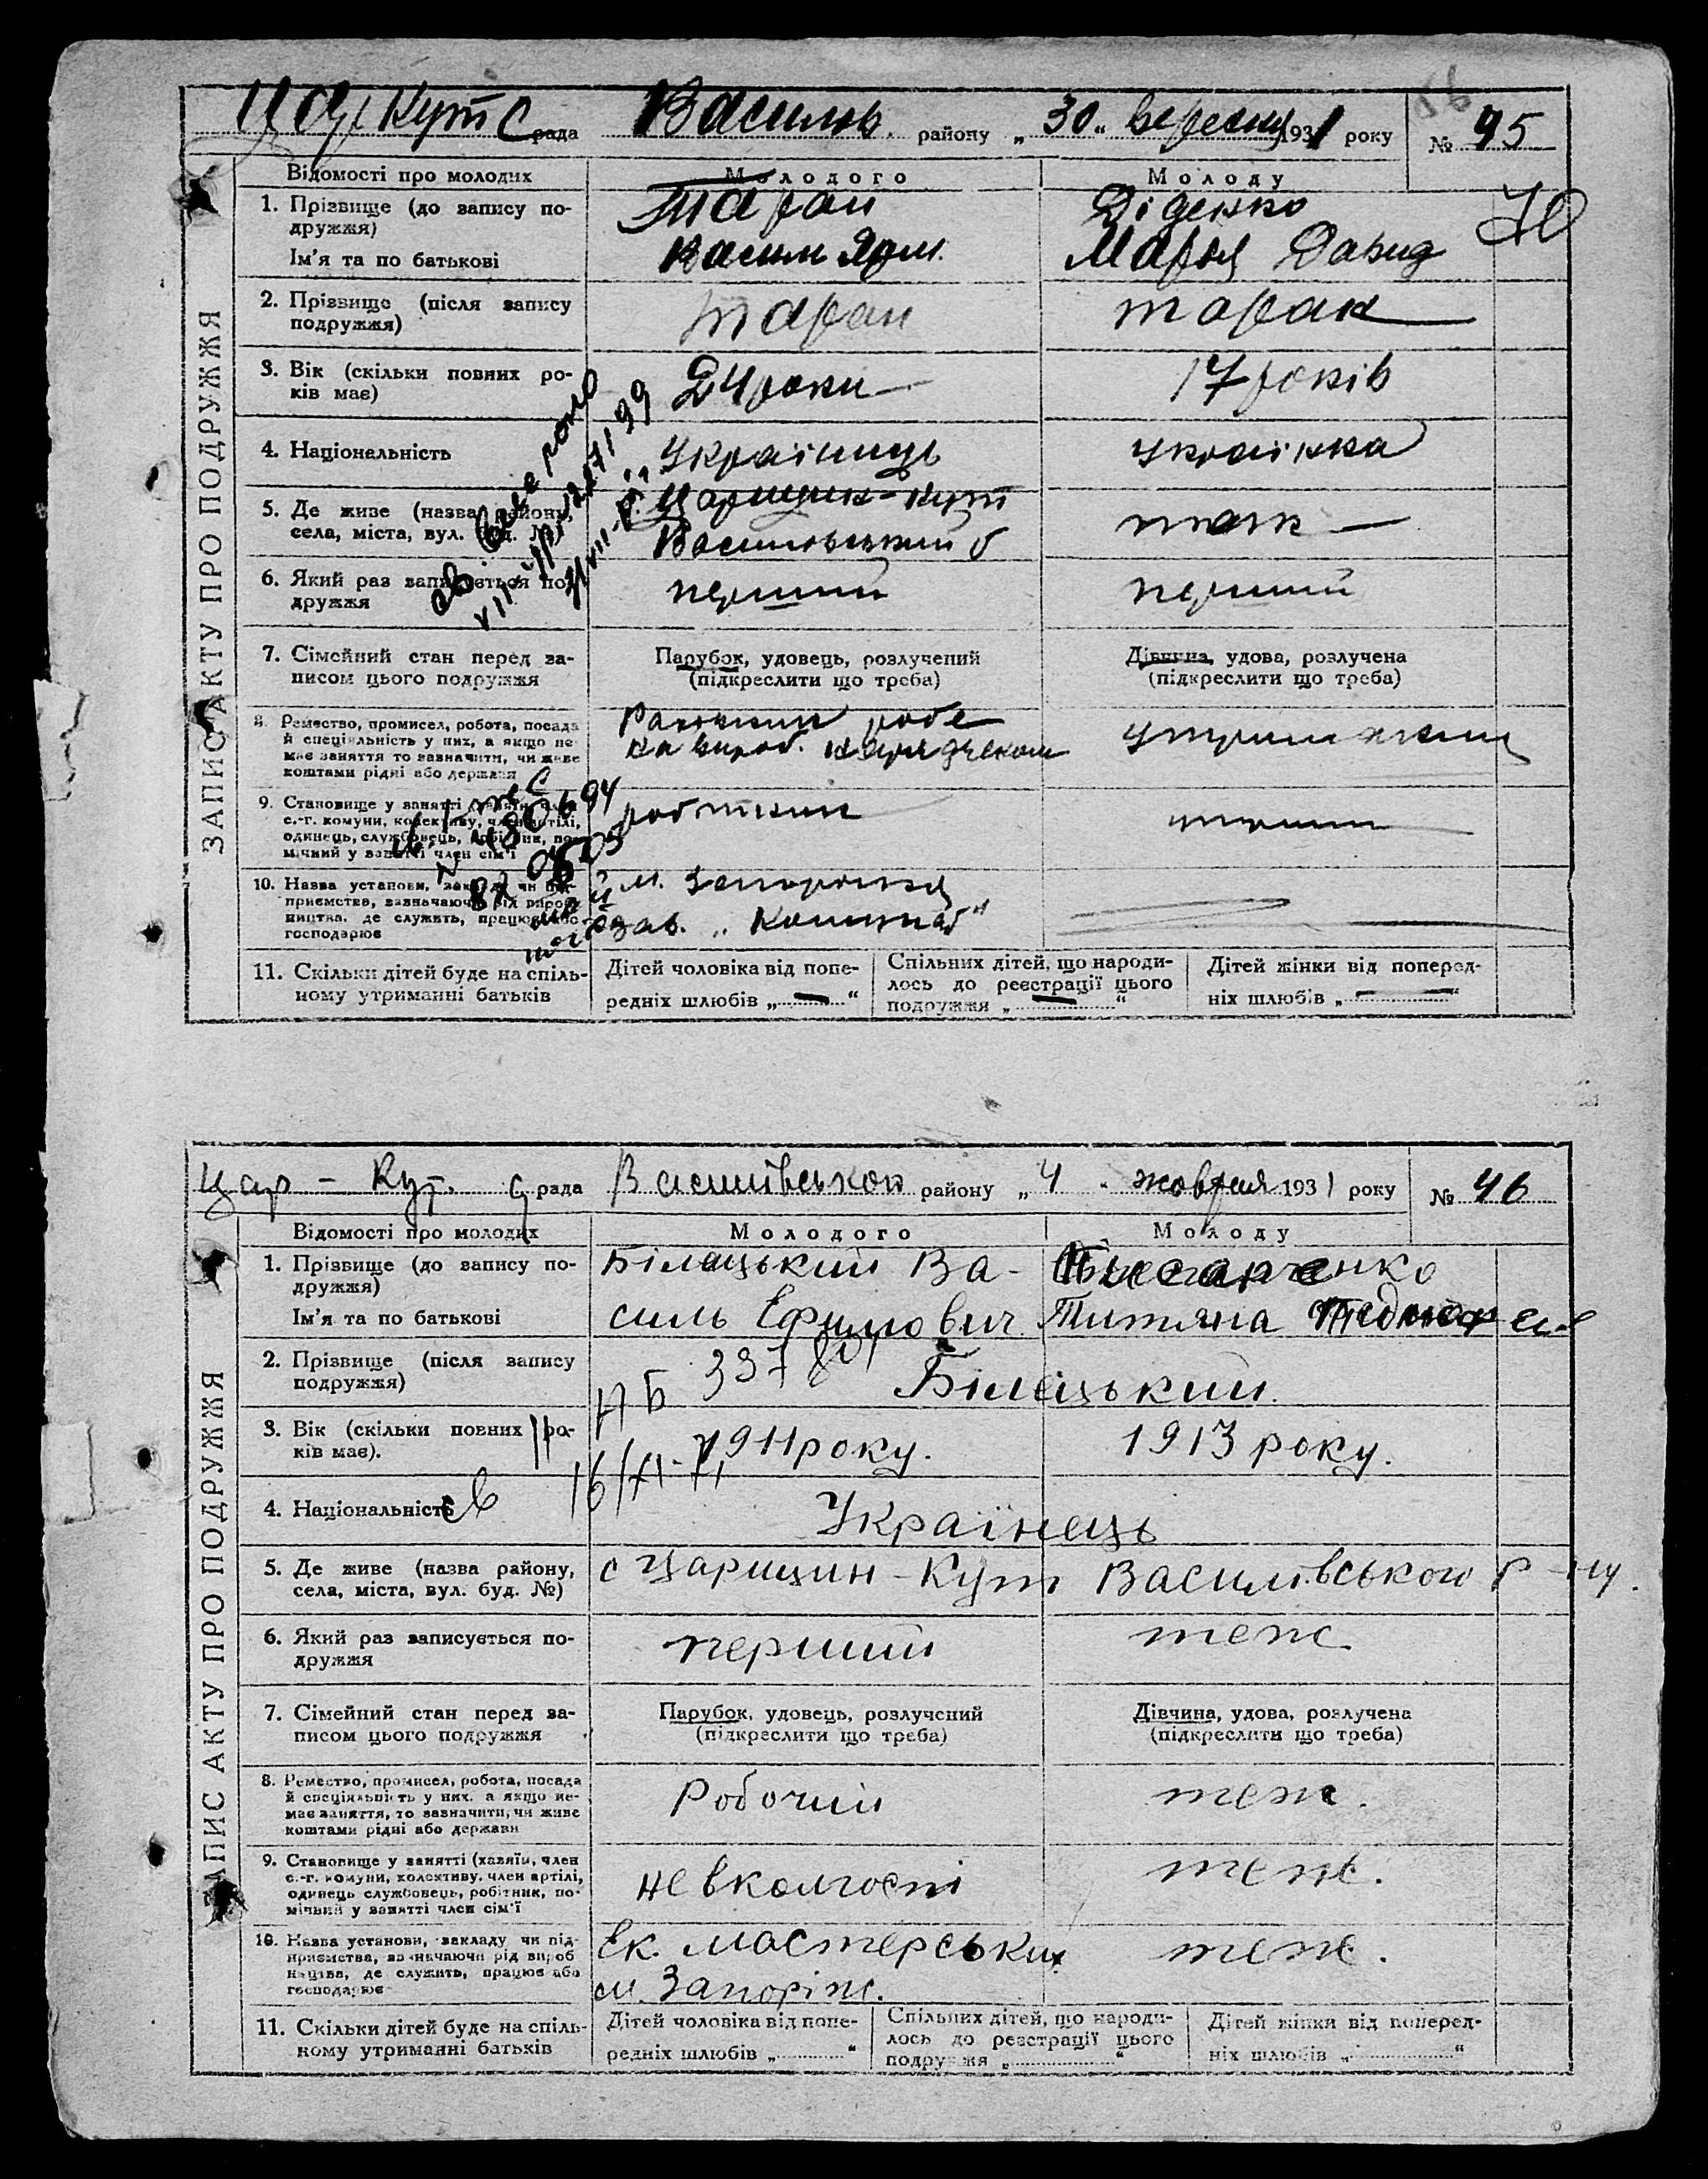 Цар Кут С рада Василів. району „30„ вересня 1931 року № 45
ЗАПИС АКТУ ПРО ПОДРУЖЖЯ
Відомості про молодих Молодого Молоду
1. Прізвище (до запису по-
дружжя)
Таран Діденко
Ім'я та по батькові
Марья Давид
2. Прізвище (після запису
подружжя)
Таран Таран
3. Вік (скільки повних ро-
ків має)
24 роки 17 років
4. Національність Українець Українка
5. Де живе (назва району,
села, міста, вул. буд. №)
Царицин-Кут
Василівський
6. Який раз записується по-
дружжя
перший перший
7. Сімейний стан перед за-
писом цього подружжя
Парубок, удовець, розлучений
(підкреслити що треба)
Дівчина, удова, розлучена
(підкреслити що треба)
8. Ремество, промисел, робота, посада
й спеціяльність у них, а якщо не
має заняття то зазначити, чи живе
коштами рідні або держави
9. Становище у занятті (хазяїн, член
с.-г. комуни, колективу, член артілі,
одинець, службовець, робітник, по-
мічний у занятті член сім'ї
10. Назва установи, закладу чи під-
приємства, зазначаючи рід вироб-
ництва, де служить, працює або
господарює
зав. „Комунар"
11. Скільки дітей буде на спіль-
ному утриманні батьків
Дітей чоловіка від попе-
редніх шлюбів „ — “
Спільних дітей, що народи-
лось до реєстрації цього
подружжя „ — “
Дітей жінки від поперед-
ніх шлюбів „ — “
Цар - Кут. С рада Василівського району „4 „ жовтня 1931 року № 46
ЗАПИС АКТУ ПРО ПОДРУЖЖЯ
Відомості про молодих Молодого Молоду
1. Прізвище (до запису по-
дружжя)
Білецький Ва-
Ім'я та по батькові
силь Ефимович Титяна
2. Прізвище (після запису
подружжя)
Білецький.
3. Вік (скільки повних ро-
ків має).
1911 року. 1913 року.
4. Національність Українець
5. Де живе (назва району,
села, міста, вул. буд. №)
с Царицин-Кут Василівського р-ну.
6. Який раз записується по-
дружжя
перший теж
7. Сімейний стан перед за-
писом цього подружжя
Парубок, удовець, розлучений
(підкреслити що треба)
Дівчина, удова, розлучена
(підкреслити що треба)
8. Ремество, промисел, робота, посада
й спеціяльність у них, а якщо не-
має заняття, то зазначити, чи живе
коштами рідні або держави
Робочий теж.
9. Становище у занятті (хазяїн, член
с.-г. комуни, колективу, член артілі,
одинець службовець, робітник, по-
мічний у занятті член сім'ї
не вколгоспі теж.
10. Назва установи, закладу чи під-
приємства, зазначаючи рід вироб
ництва, де служить, працює або
господарює
Ек. мастерських теж.
м. Запоріж.
11. Скільки дітей буде на спіль-
ному утриманні батьків
Дітей чоловіка від попе-
редніх шлюбів „ “
Спільних дітей, що народи-
лось до реєстрації цього
подружжя „ “
Дітей жінки від поперед-
ніх шлюбів „ “